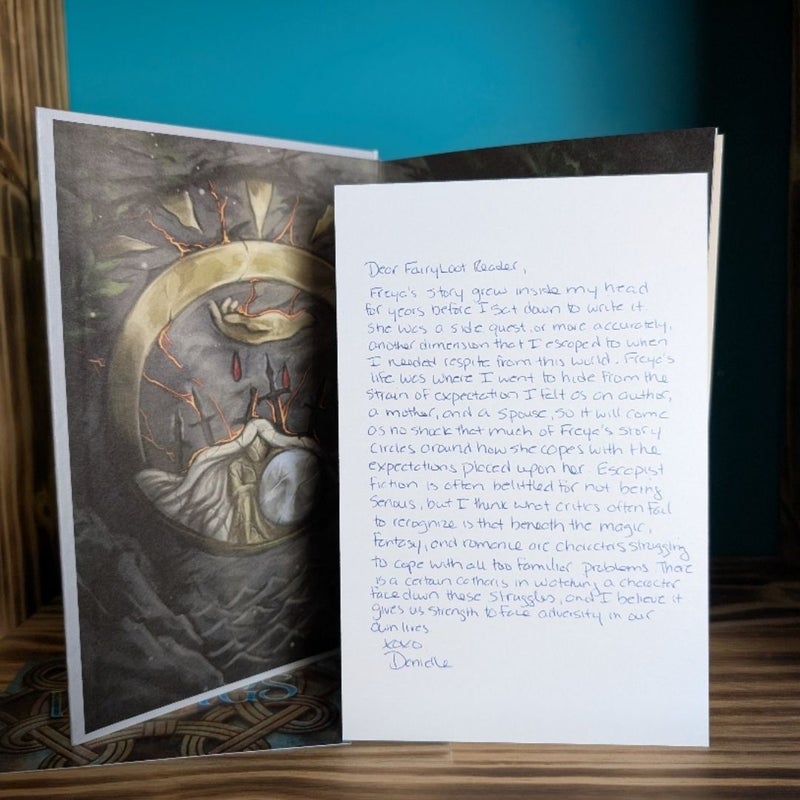 Dear FairyLoot Reader,
Freya's story grew inside my head
for years before I sat down to write it.
She was a side quest, or more accurately,
another dimension that I escaped to when
I needed respite from this world. Freya's
life was where I went to hide from the
strain of expectation I felt as an author,
a mother, and a spouse, so it will come
as no shock that much of Freya's story
circles around how she copes with the
expectations placed upon her. Escapist
fiction is often belittled for not being
serious, but I think what critics often fail
to recognize is that beneath the magic,
fantasy, and romance are characters struggling
to cope with all too familiar problems. There
is a certain catharsis in watching a character
face down these struggles, and I believe it
gives us strength to face adversity in our
own lives
xoxo
Danielle